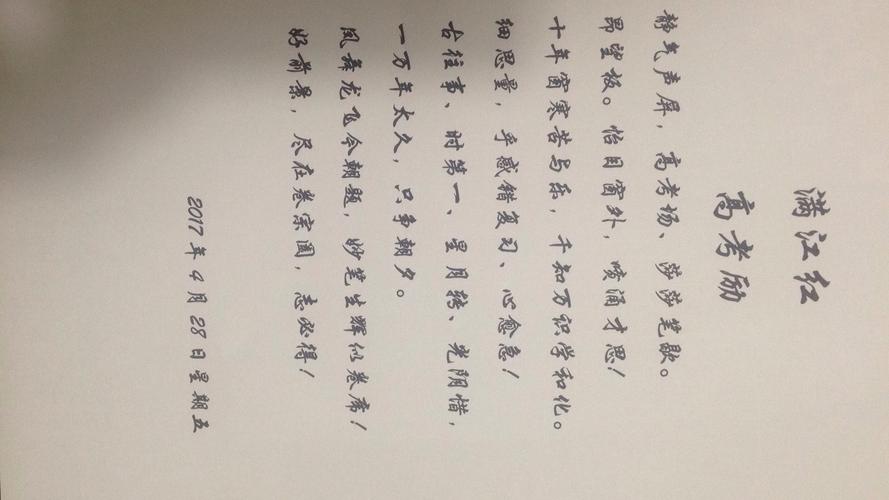 满江红
高考励
静气声屏，高考场、莎莎笔歇。
昂望板。怡目窗外，喷涌才思！
十年窗寒苦与乐，千知万识学和化。
细思量，乎感错复习、心愈急！
台往事、时第一、星月转、光阴惜，
一万年太久，只争朝夕。
凤舞龙飞今朝题，妙笔生辉似卷席！
好前景，尽在卷宗圆，志必得！
2017年4月28日星期五